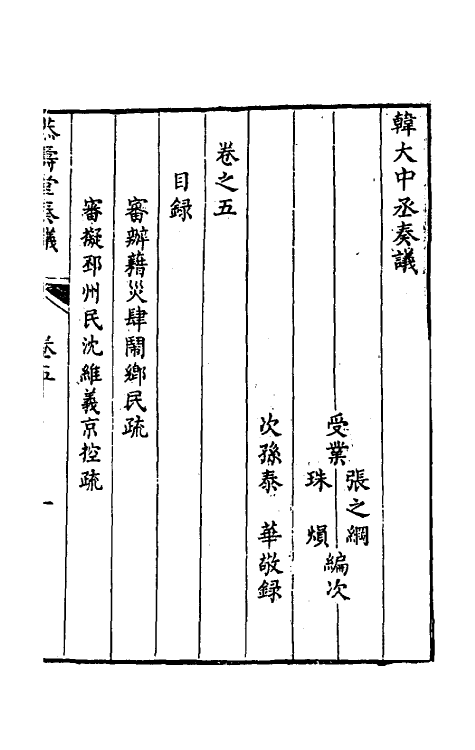 韓大中丞奏議
受業 張之綱 珠煩 編次
次孫泰 華敬録
卷之五
目録
審辦藉災肆鬧鄉民疏
審擬邳州民沈維義京控疏
壽堂奏議 卷五 一